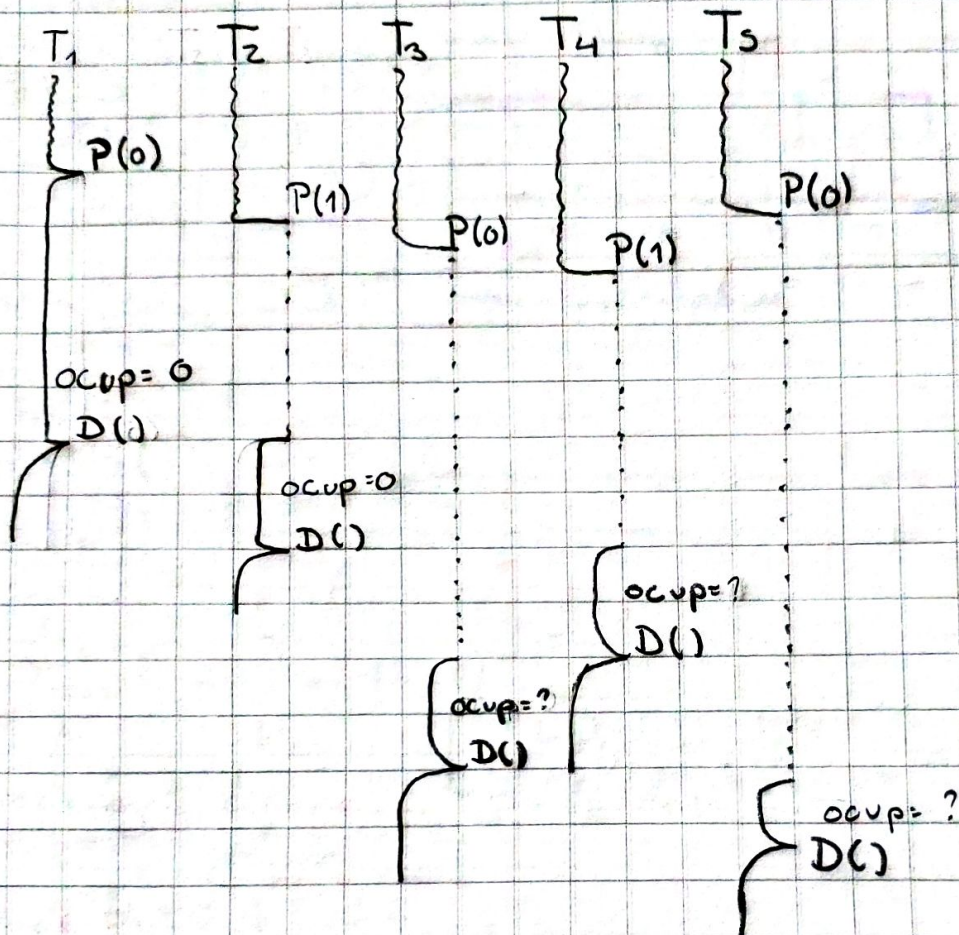 T1 T2 T3 T4 T5
P(0)
P(1)
P(0)
P(0)
P(1)
ocup= 0
D()
ocup=0
D()
ocup=?
D()
ocup=?
D()
ocup= ?
D()